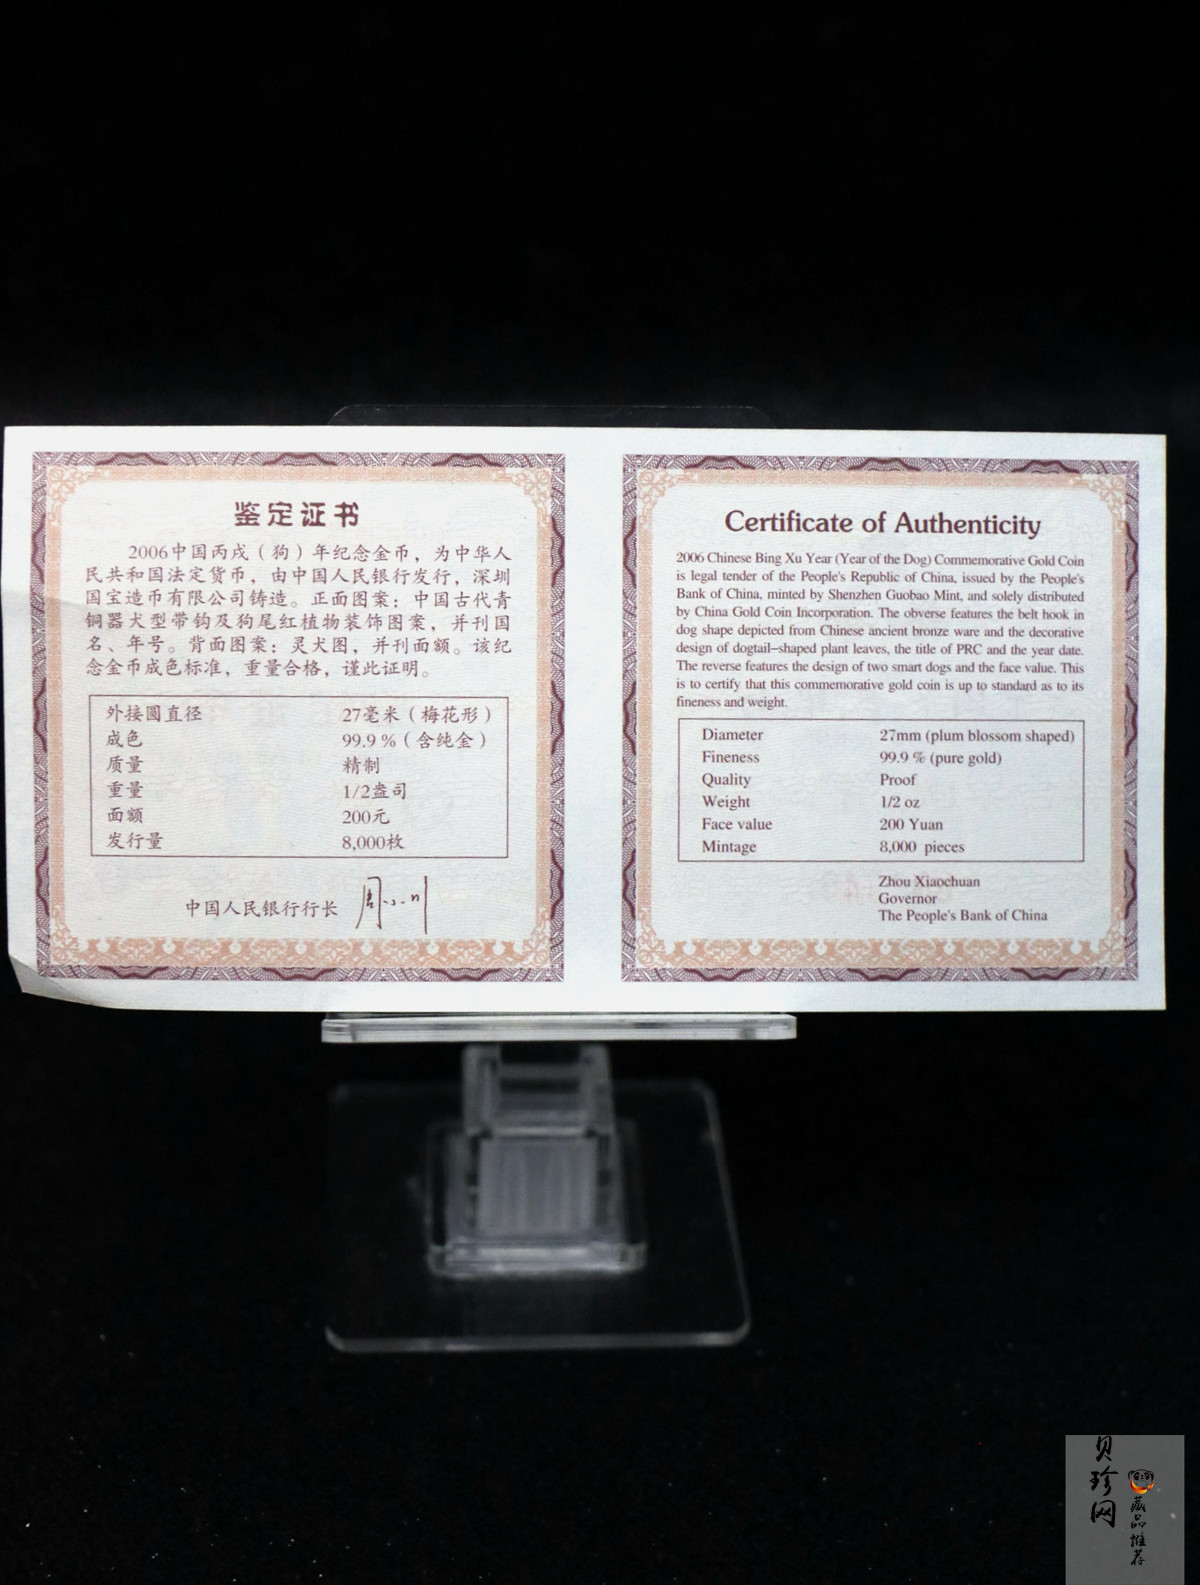 鉴定证书
2006中国丙戌（狗）年纪念金币，为中华人
民共和国法定货币，由中国人民银行发行，深圳
国宝造币有限公司铸造。正面图案：中国古代青
铜器犬型带钩及狗尾红植物装饰图案，并刊国
名、年号。背面图案：灵犬图，并刊面额。该纪
念金币成色标准，重量合格，谨此证明。
外接圆直径 27毫米（梅花形）
成色 99.9%（含纯金）
质量 精制
重量 1/2盎司
面额 200元
发行量 8,000枚
中国人民银行行长 周小川
Certificate of Authenticity
2006 Chinese Bing Xu Year (Year of the Dog) Commemorative Gold Coin
is legal tender of the People's Republic of China, issued by the People's
Bank of China, minted by Shenzhen Guobao Mint, and solely distributed
by China Gold Coin Incorporation. The obverse features the belt hook in
dog shape depicted from Chinese ancient bronze ware and the decorative
design of dogtail-shaped plant leaves, the title of PRC and the year date.
The reverse features the design of two smart dogs and the face value. This
is to certify that this commemorative gold coin is up to standard as to its
fineness and weight.
Diameter 27mm (plum blossom shaped)
Fineness 99.9 % (pure gold)
Quality Proof
Weight 1/2 oz
Face value 200 Yuan
Mintage 8,000 pieces
Zhou Xiaochuan
Governor
The People's Bank of China
贝珍网
藏品推荐